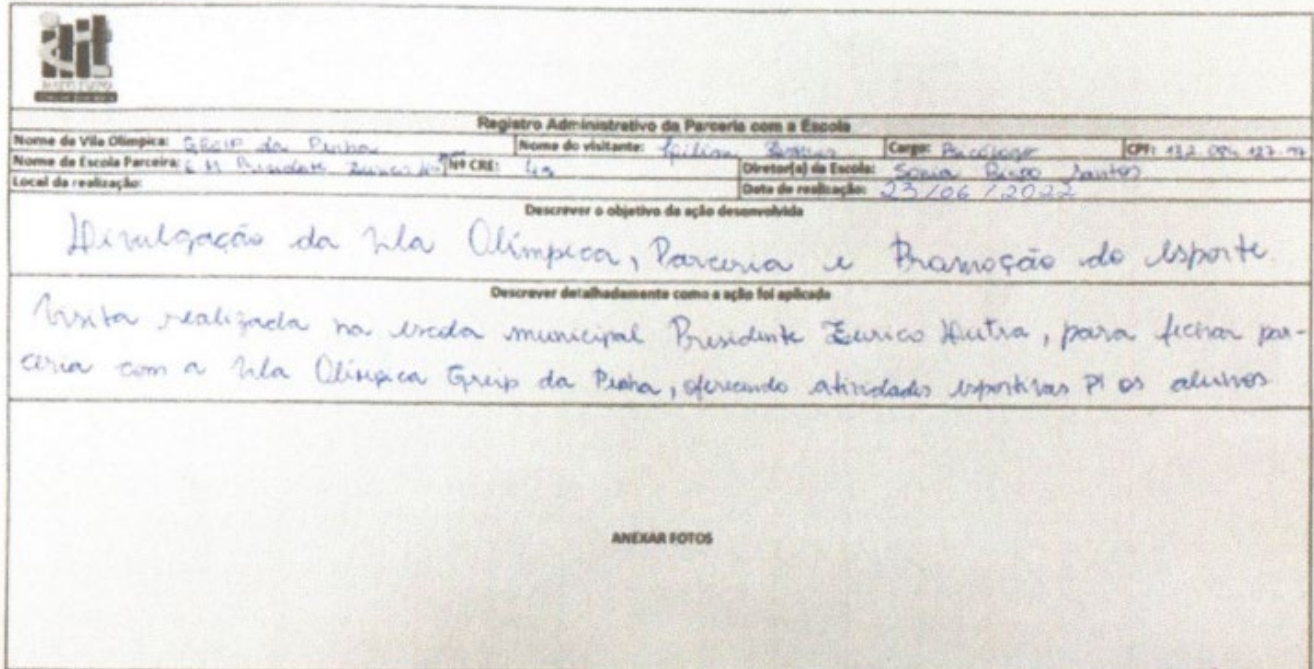 INSTITUTO
Registro Administrativo da Parceria com a Escola
Nome da Vila Olímpica: GREIP da Penha Nome do visitante: Cargo: Psicólogo CPF:
Nome da Escola Parceira: E M Presidente Eurico Nº CRE: 4a Diretor(a) da Escola: Sonia Santos
Local da realização: Data da realização: 23/06/2022
Descrever o objetivo da ação desenvolvida
Divulgação da Vila Olímpica, Parceria e Promoção do esporte.
Descrever detalhadamente como a ação foi aplicada
Visita realizada na escola municipal Presidente Eurico Dutra, para fechar par-
ceria com a Vila Olímpica Greip da Penha, oferecendo atividades esportivas p/ os alunos
ANEXAR FOTOS